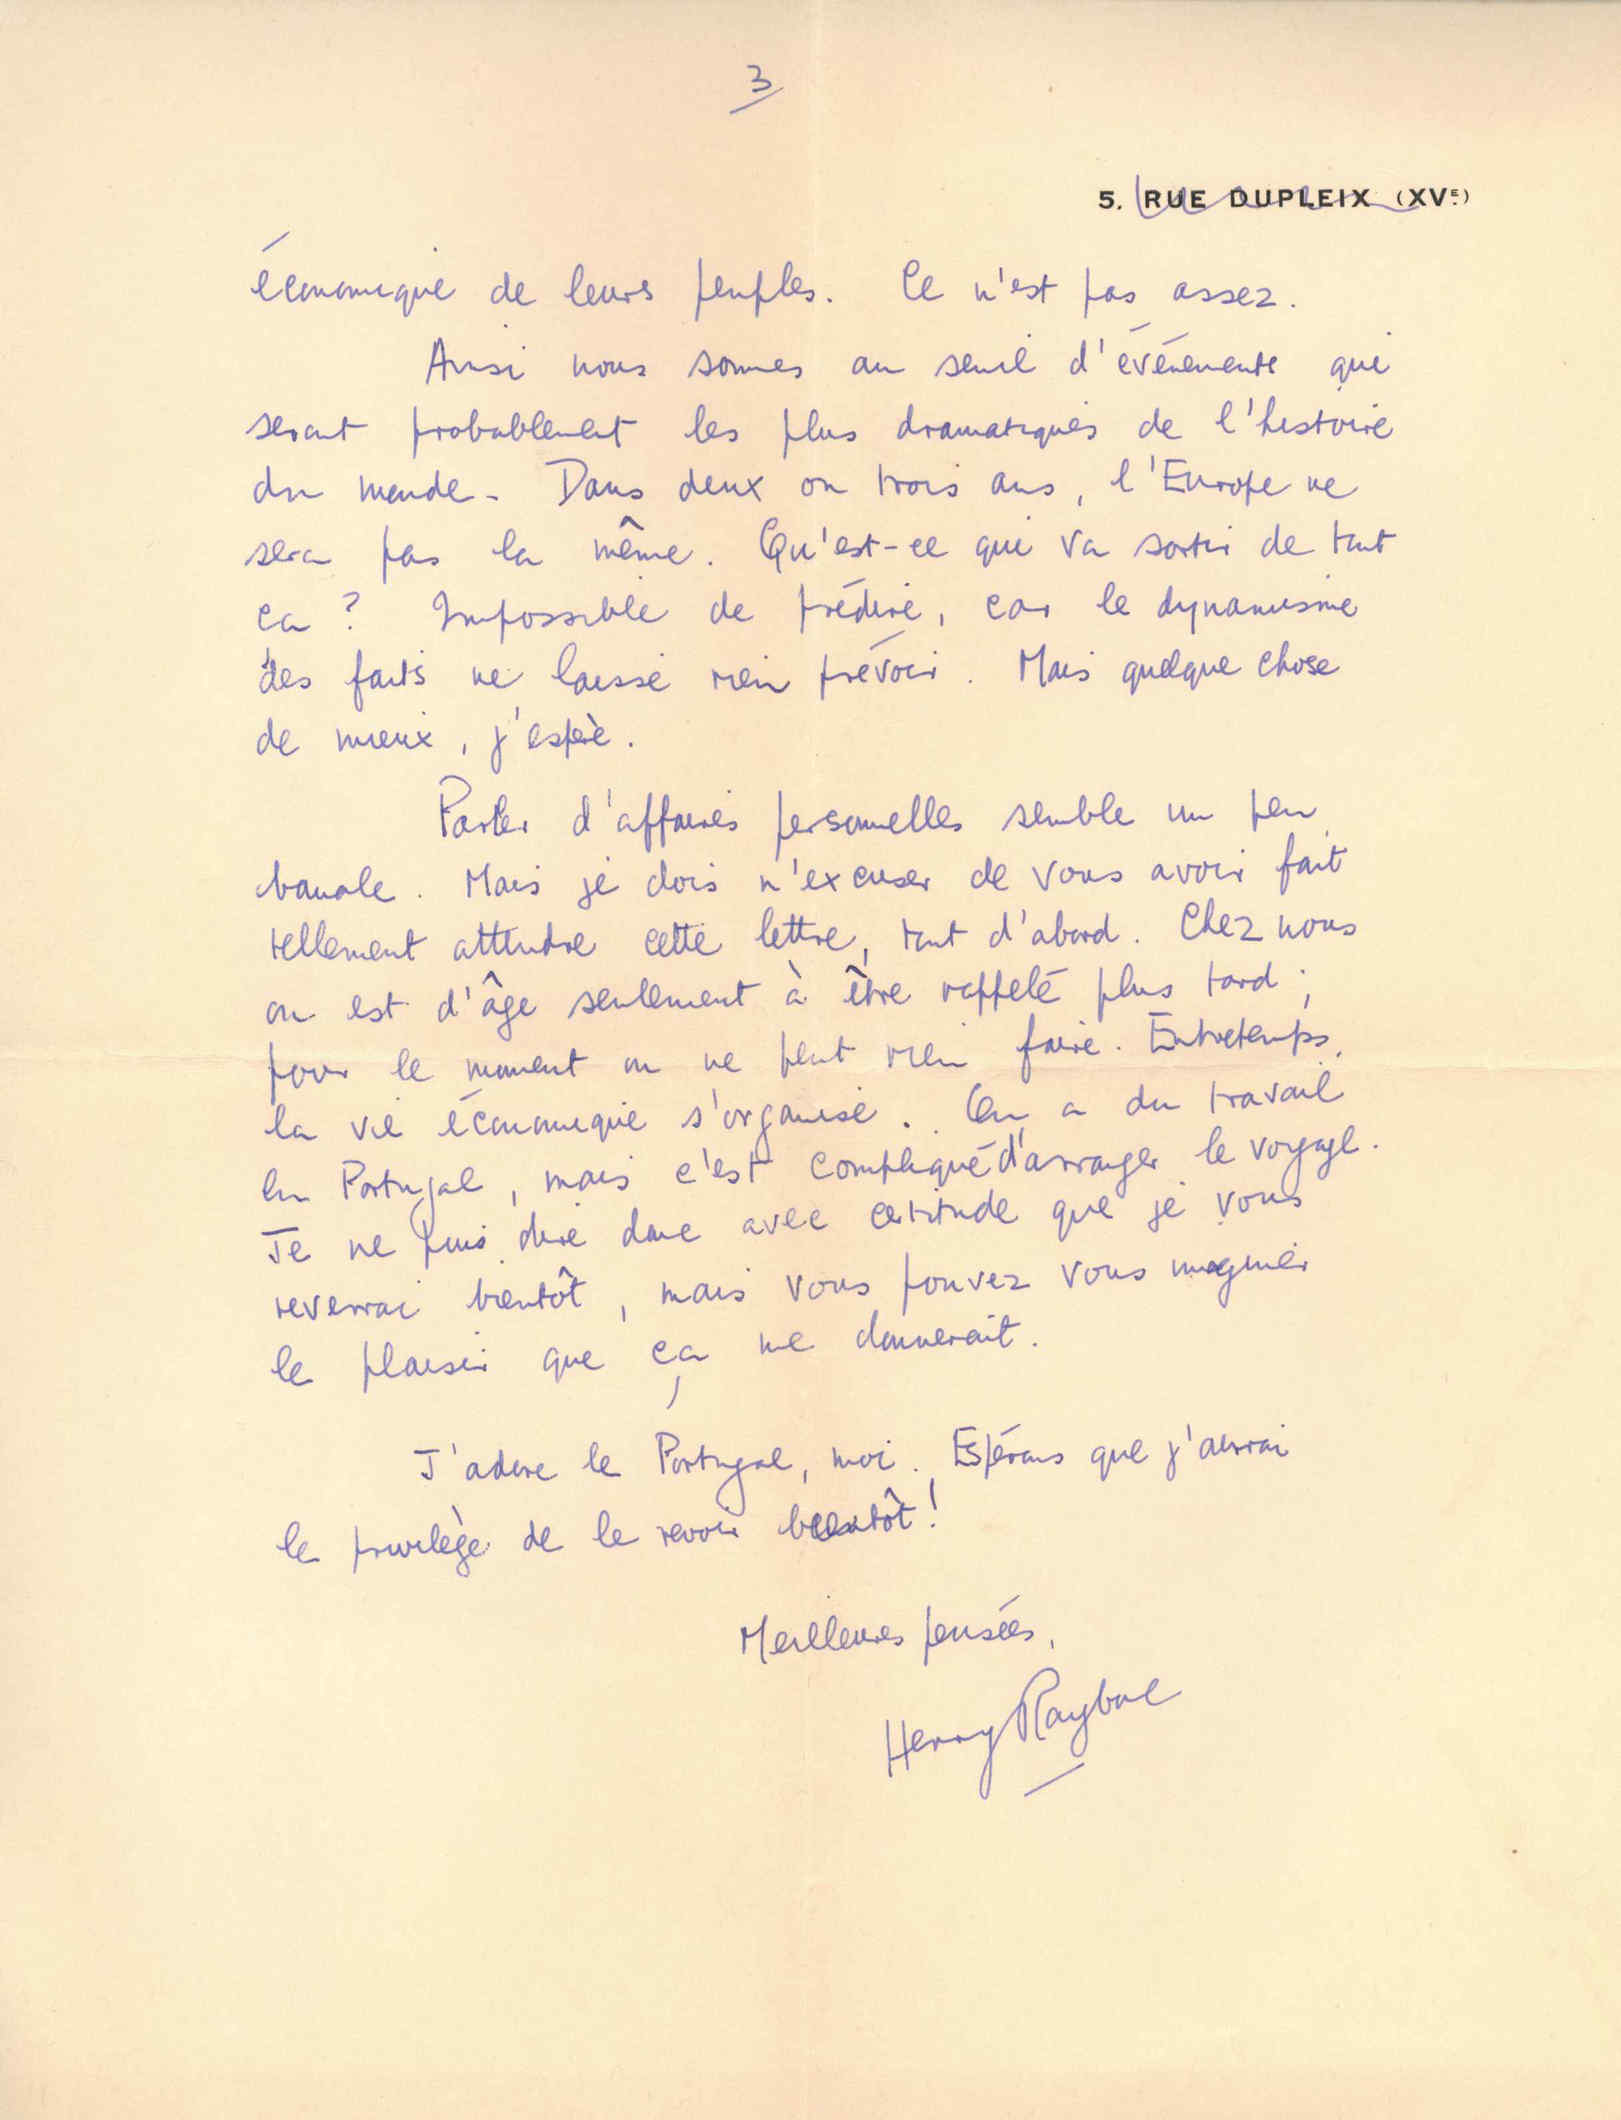 3
5. RUE DUPLEIX (XVE)
économique de leurs peuples. Ce n'est pas assez.
Ainsi nous sommes au seuil d'événements qui
seront probablement les plus dramatiques de l'histoire
du monde. Dans deux ou trois ans, l'Europe ne
sera pas la même. Qu'est-ce qui va sortir de tout
ça ? Impossible de prédire, car le dynamisme
des faits ne laisse rien prévoir. Mais quelque chose
de mieux, j'espère.
Parler d'affaires personnelles semble un peu
banale. Mais je dois m'excuser de vous avoir fait
tellement attendre cette lettre, tout d'abord. Chez nous
on est d'âge seulement à être rappelé plus tard ;
pour le moment on ne peut rien faire. Entretemps,
la vie économique s'organise. On a du travail
en Portugal, mais c'est compliqué d'arranger le voyage.
Je ne puis dire donc avec certitude que je vous
reverrai bientôt, mais vous pouvez vous imaginer
le plaisir que ça me donnerait.
J'adore le Portugal, moi. Espérons que j'aurrai
le privilège de le revoir bientôt !
Meilleures pensées,
Henry